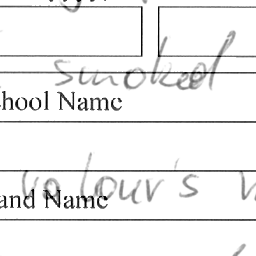 smoked
chool Name
valour's
and Name